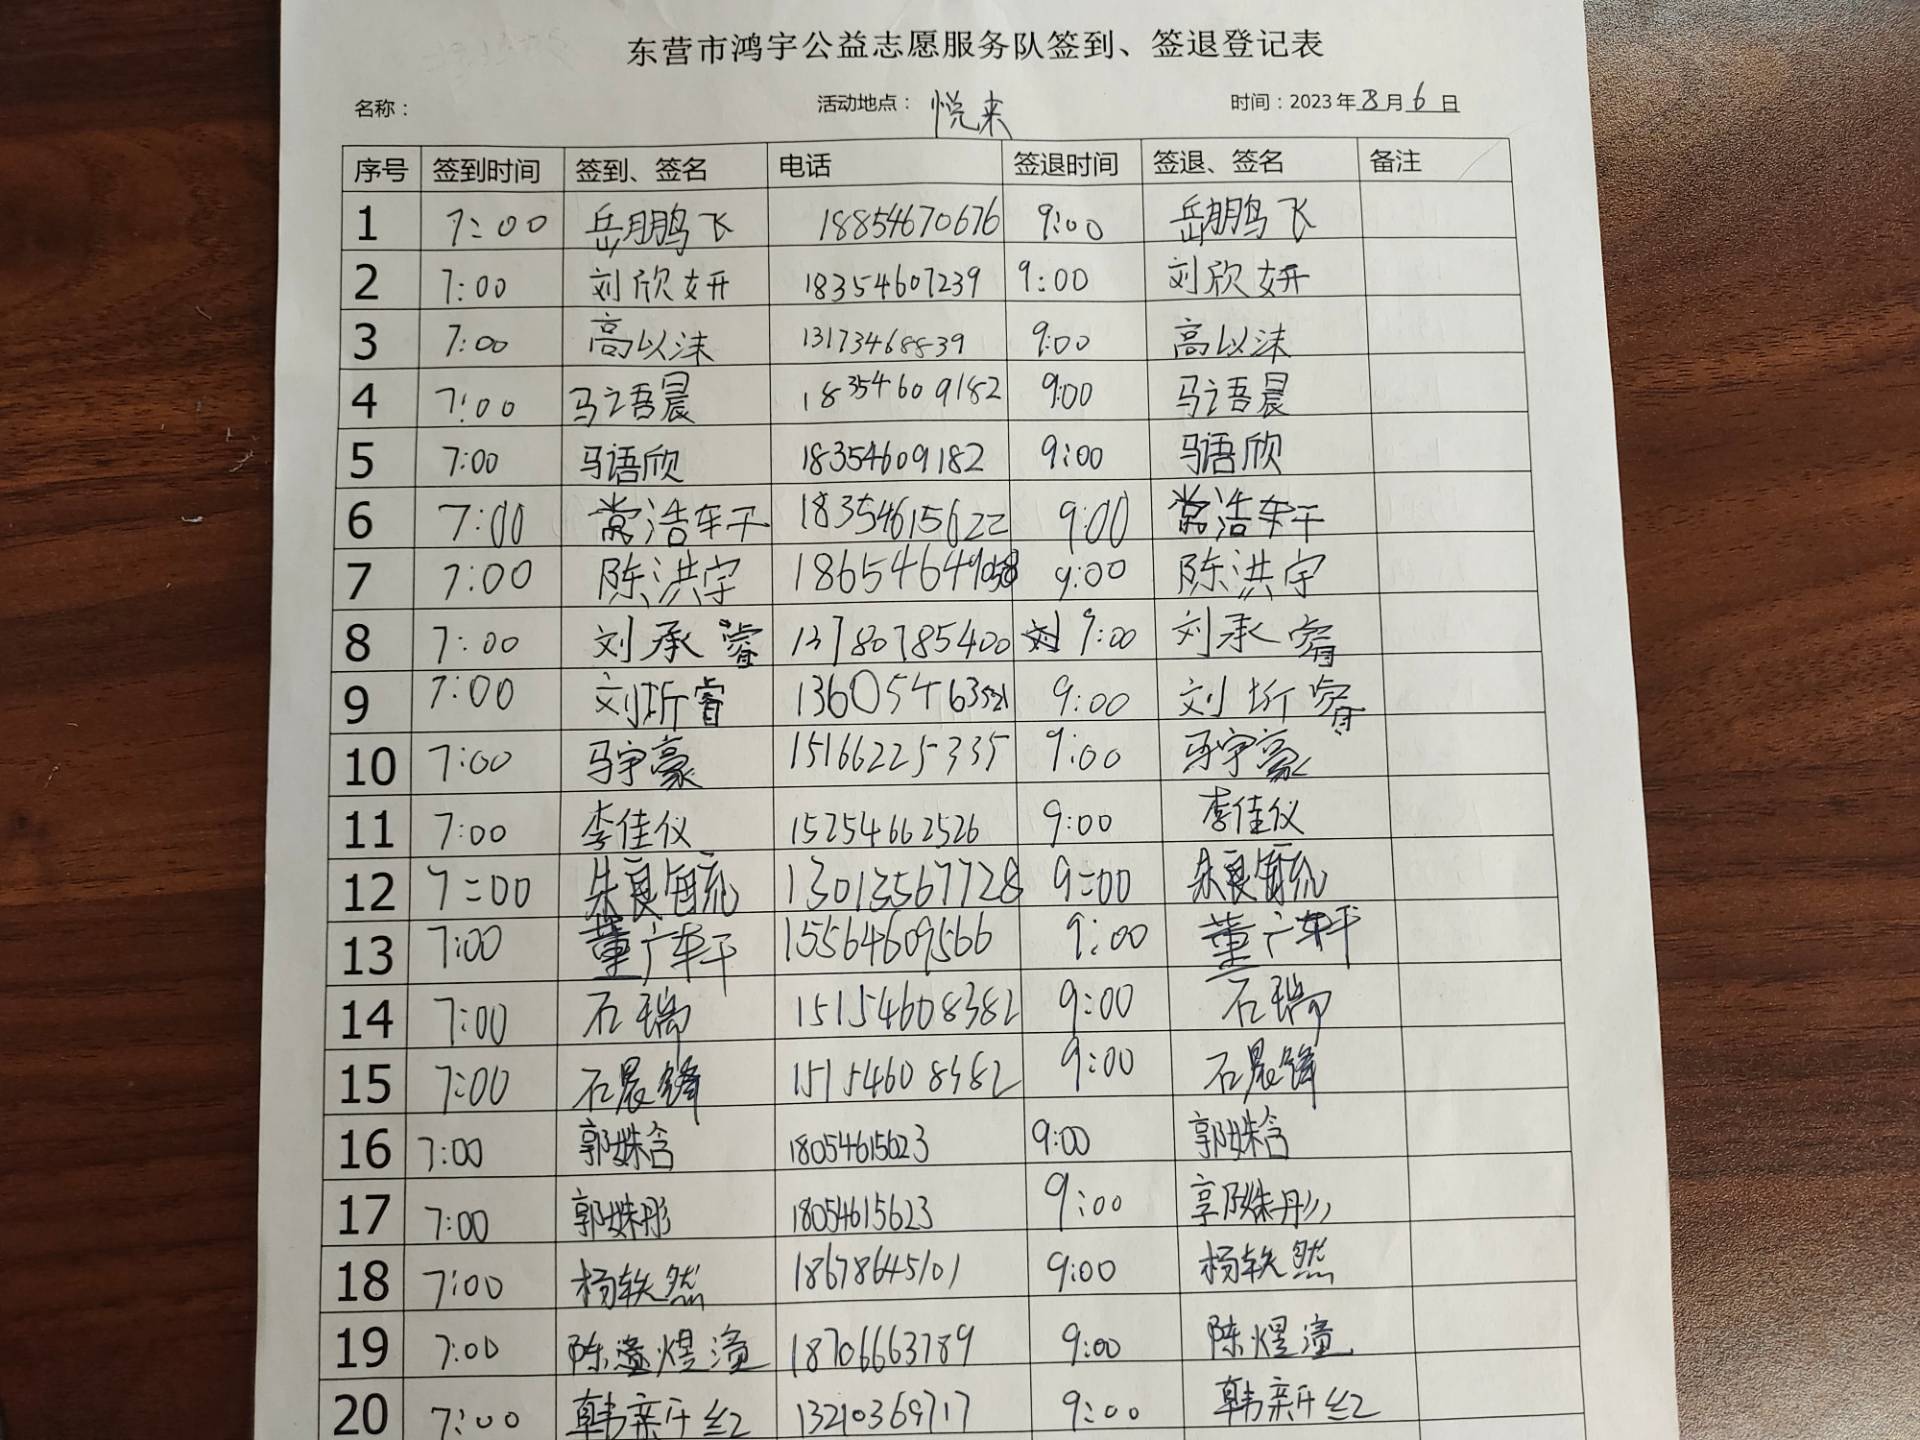 东营市鸿宇公益志愿服务队签到、签退登记表
名称： 活动地点：悦来 时间：2023年8月6日
序号 签到时间 签到、签名 电话 签退时间 签退、签名 备注
1 7:00 岳鹏飞 18854670676 9:00 岳鹏飞
2 7:00 刘欣妍 18354607239 9:00 刘欣妍
3 7:00 高以沫 13173468839 9:00 高以沫
4 7:00 马语晨 18354609182 9:00 马语晨
5 7:00 马语欣 18354609182 9:00 马语欣
6 7:00 常浩轩 18354615622 9:00 常浩轩
7 7:00 陈洪宇 9:00 陈洪宇
8 7:00 刘承睿 13780785400 9:00 刘承睿
9 7:00 刘圻睿 13605463521 9:00 刘圻睿
10 7:00 马宇豪 15166225335 9:00 马宇豪
11 7:00 李佳仪 15254662526 9:00 李佳仪
12 7:00 朱良毓 13013567728 9:00 朱良毓
13 7:00 董广轩 15564609566 9:00 董广轩
14 7:00 石瑞 15154608382 9:00 石瑞
15 7:00 石晨锋 15154608382 9:00 石晨锋
16 7:00 郭姝含 18054615623 9:00 郭姝含
17 7:00 郭姝彤 18054615623 9:00 郭姝彤
18 7:00 杨轶然 18678645101 9:00 杨轶然
19 7:00 陈煜潼 18706663789 9:00 陈煜潼
20 7:00 韩新红 13210369717 9:00 韩新红